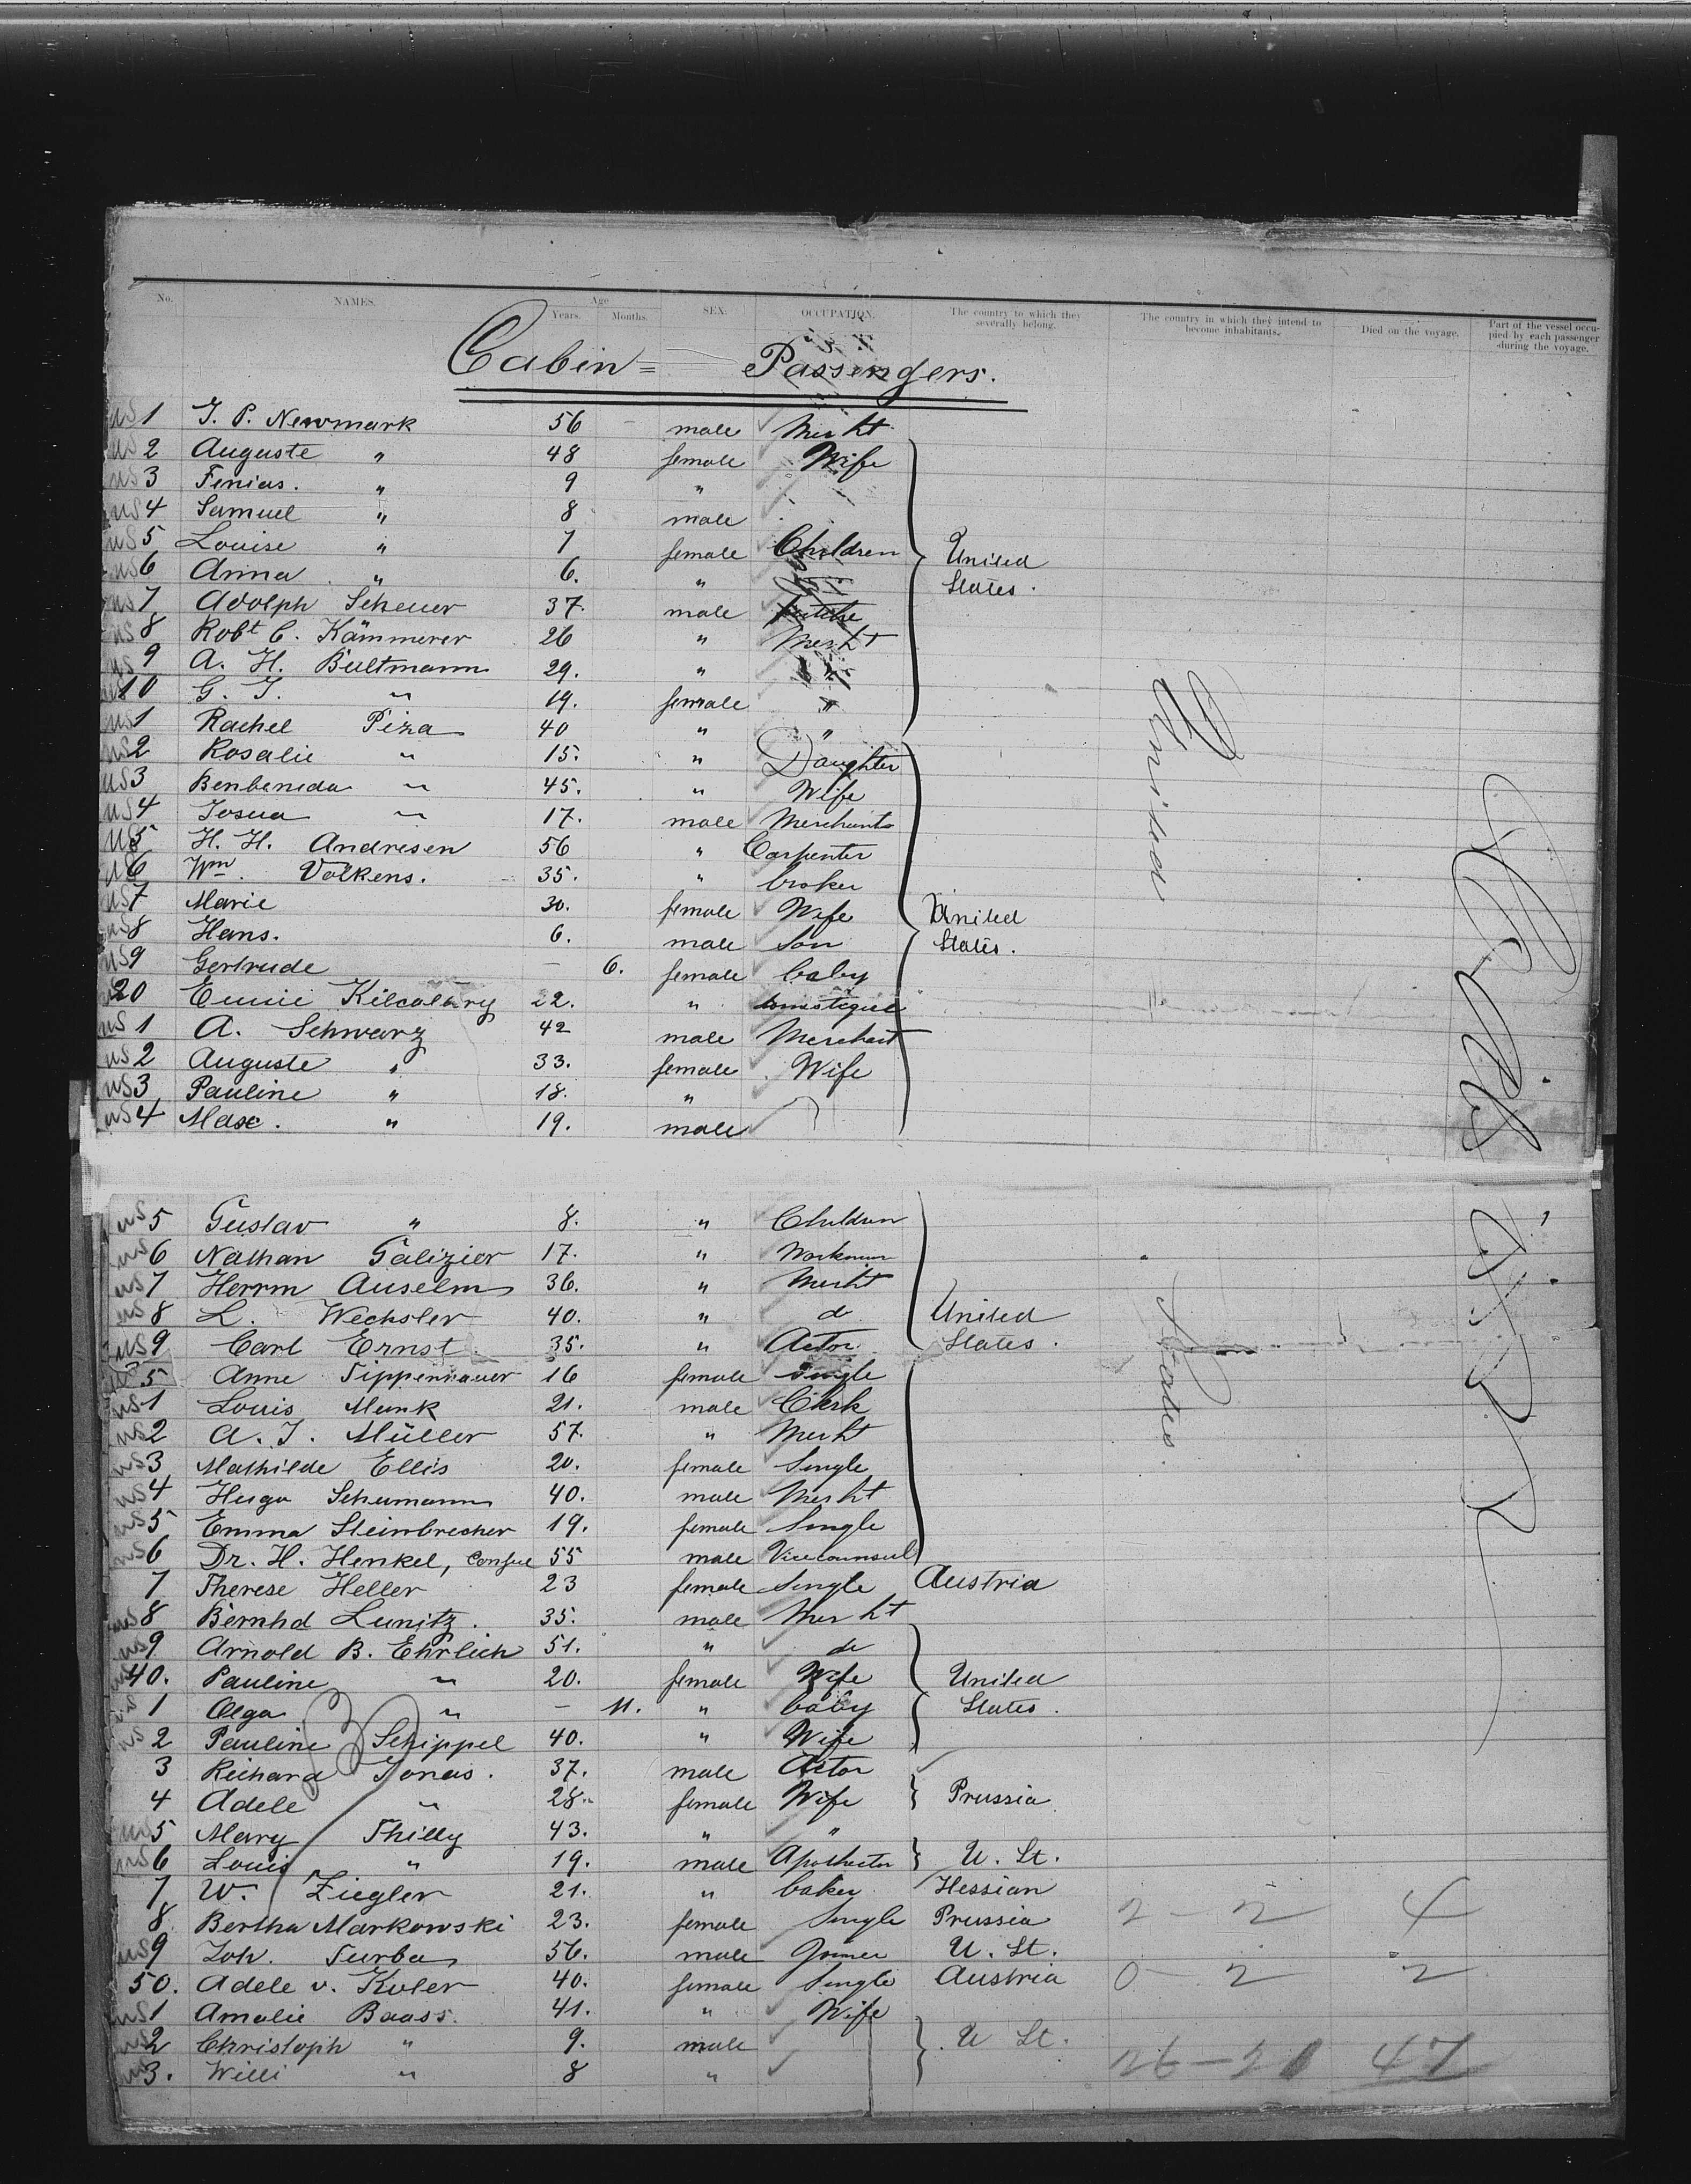 No. NAMES. Age Years. Months. SEX. OCCUPATION. The country to which they severally belong. The country in which they intend to become inhabitants. Died on the voyage. Part of the vessel occupied by each passenger during the voyage.
Cabin = Passengers.
US 1 J. P. Newmark 56 male Mercht
US 2 Auguste " 48 female Wife
US 3 Fenias. " 9 "
US 4 Samuel " 8 male
US 5 Louise " 7 female Children United
US 6 Anna " 6. " States.
US 7 Adolph Scheuer 37. male
US 8 Robt C. Kämmerer 26 " Mercht
US 9 A. H. Bültmann 29. " "
US 10 G. J. " 19. female "
US 1 Rachel Piza 40 " "
US 2 Rosalie " 15. " Daughter
US 3 Benbenida " 45. " Wife
US 4 Josua " 17. male Merchants
US 5 H. H. Andresen 56 " Carpenter
US 6 Wm. Völkens. 35. " broker
US 7 Marie 30. female Wife United
US 8 Hans. 6. male Son States.
US 9 Gertrude — 6. female baby
20 Kilcoltry 22. "
US 1 A. Schwarz 42 male Merchant
US 2 Auguste " 33. female Wife
US 3 Pauline " 18. "
US 4 Max. " 19. male
United
US 5 Gustav " 8. " Children
US 6 Nathan Galizier 17. " Workman
US 7 Herrm Anselm 36. " Mercht
US 8 L. Wechsler 40. " do United
US 9 Carl Ernst 35. " Actor States.
5 Anne Tippenhauer 16 female Single
US 1 Louis Munk 21. male Clerk
US 2 A. J. Müller 57. " Mercht
US 3 Mathilde Ellis 20. female Single
US 4 Hugo Schumann 40. male Mercht
US 5 Emma Steinbrecher 19. female Single
US 6 Dr. H. Henkel, Consul 55 male Viceconsul
7 Therese Heller 23 female Single Austria
US 8 Bernhd Lunitz. 35. male Mercht
US 9 Arnold B. Ehrlich 51. " do
40. Pauline " 20. female Wife United
US 1 Olga " — 11. " baby States.
US 2 Pauline Schippel 40. " Wife
3 Richard Jonas. 37. male Actor
4 Adele " 28. female Wife Prussia
US 5 Mary Thilly 43. " "
US 6 Louis " 19. male U. St.
7 W. Ziegler 21. " baker Hessian
8. Bertha Markowski 23. female Single Prussia 2 - 2 4
US 9 Joh. Turba 56. male Joiner U. St.
50. Adele v. Kuler 40. female Single Austria 0 - 2 2
US 1 Amalie Baass. 41. " Wife
US 2 Christoph " 9. male U St.
US 3. Willi " 8 " 26 - 21 47
States.